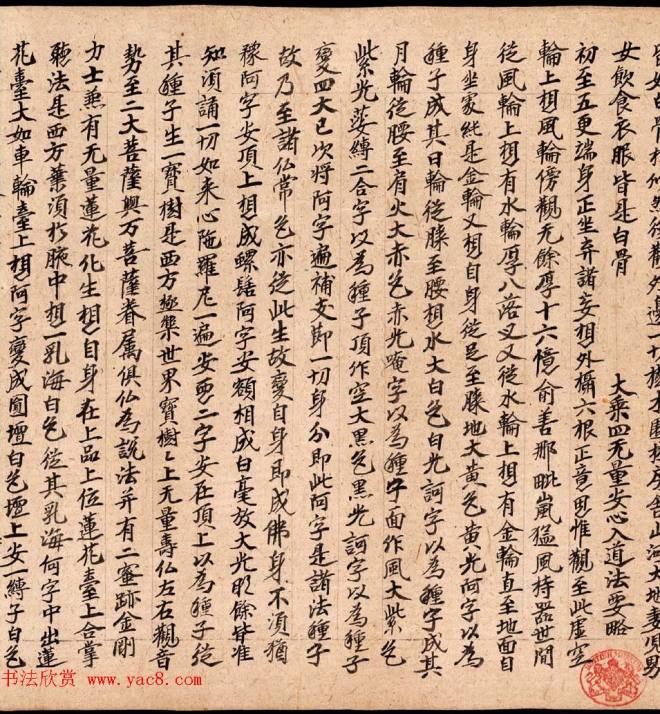 皆如白骨相似然後觀外邊一切樹木園林房舍山河大地妻兒男
女飲食衣服皆是白骨
大乘四无量安心入道法要略
初至五更端身正坐弃諸妄相外攝六根正意思惟觀至此虛空
輪上想風輪傍觀无餘厚十六億俞善那毗嵐猛風持器世間
從風輪上想有水輪厚八落叉又從水輪上想有金輪直至地面自
身坐處純是金輪又想自身從足至膝地大黃色黃光阿字以為
種子成其日輪從膝至腰想水大白色白光訶字以為種子成其
月輪從腰至肩火大赤色赤光唵字以為種字面作風大紫色
紫光娑縛二合字以為種子頂作空大黑色黑光訶字以為種子
變四大已次將阿字遍補支節一切身分即此阿字是諸法種子
故乃至諸仏常色亦從此生故變自身即成佛身不須猶
豫阿字安頂上想成螺髻阿字安額相成白毫放大光明餘皆准
知須誦一切如来心陁羅尼一遍安 二字安在頂上以為種子從
其種子生一寶樹是西方極樂世界寶樹〻上无量壽仏左右觀音
勢至二大菩薩與万菩薩眷属俱仏為說法并有二蜜跡金剛
力士兼有无量蓮花化生相自身在上品上位蓮花臺上合掌
聽法是西方葉須於腋中想一乳海白色從其乳海何字中出蓮
花臺大如車輪臺上想阿字變成圓壇白色壇上安一縛子白色
书法欣赏 www.yac8.com